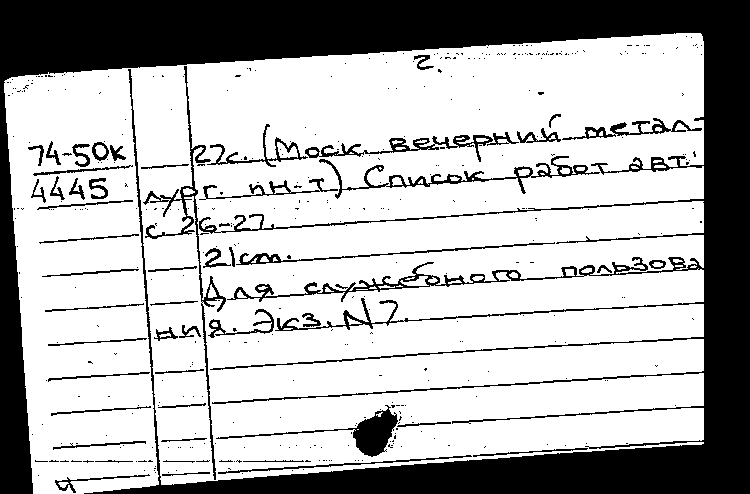 2.
74-50к 27с. (Моск. вечерний метал-
4445 лург. ин-т). Список работ авт.:
с. 26-27.
21см.
Для служебного пользова
ния. Экз. N7.
ч